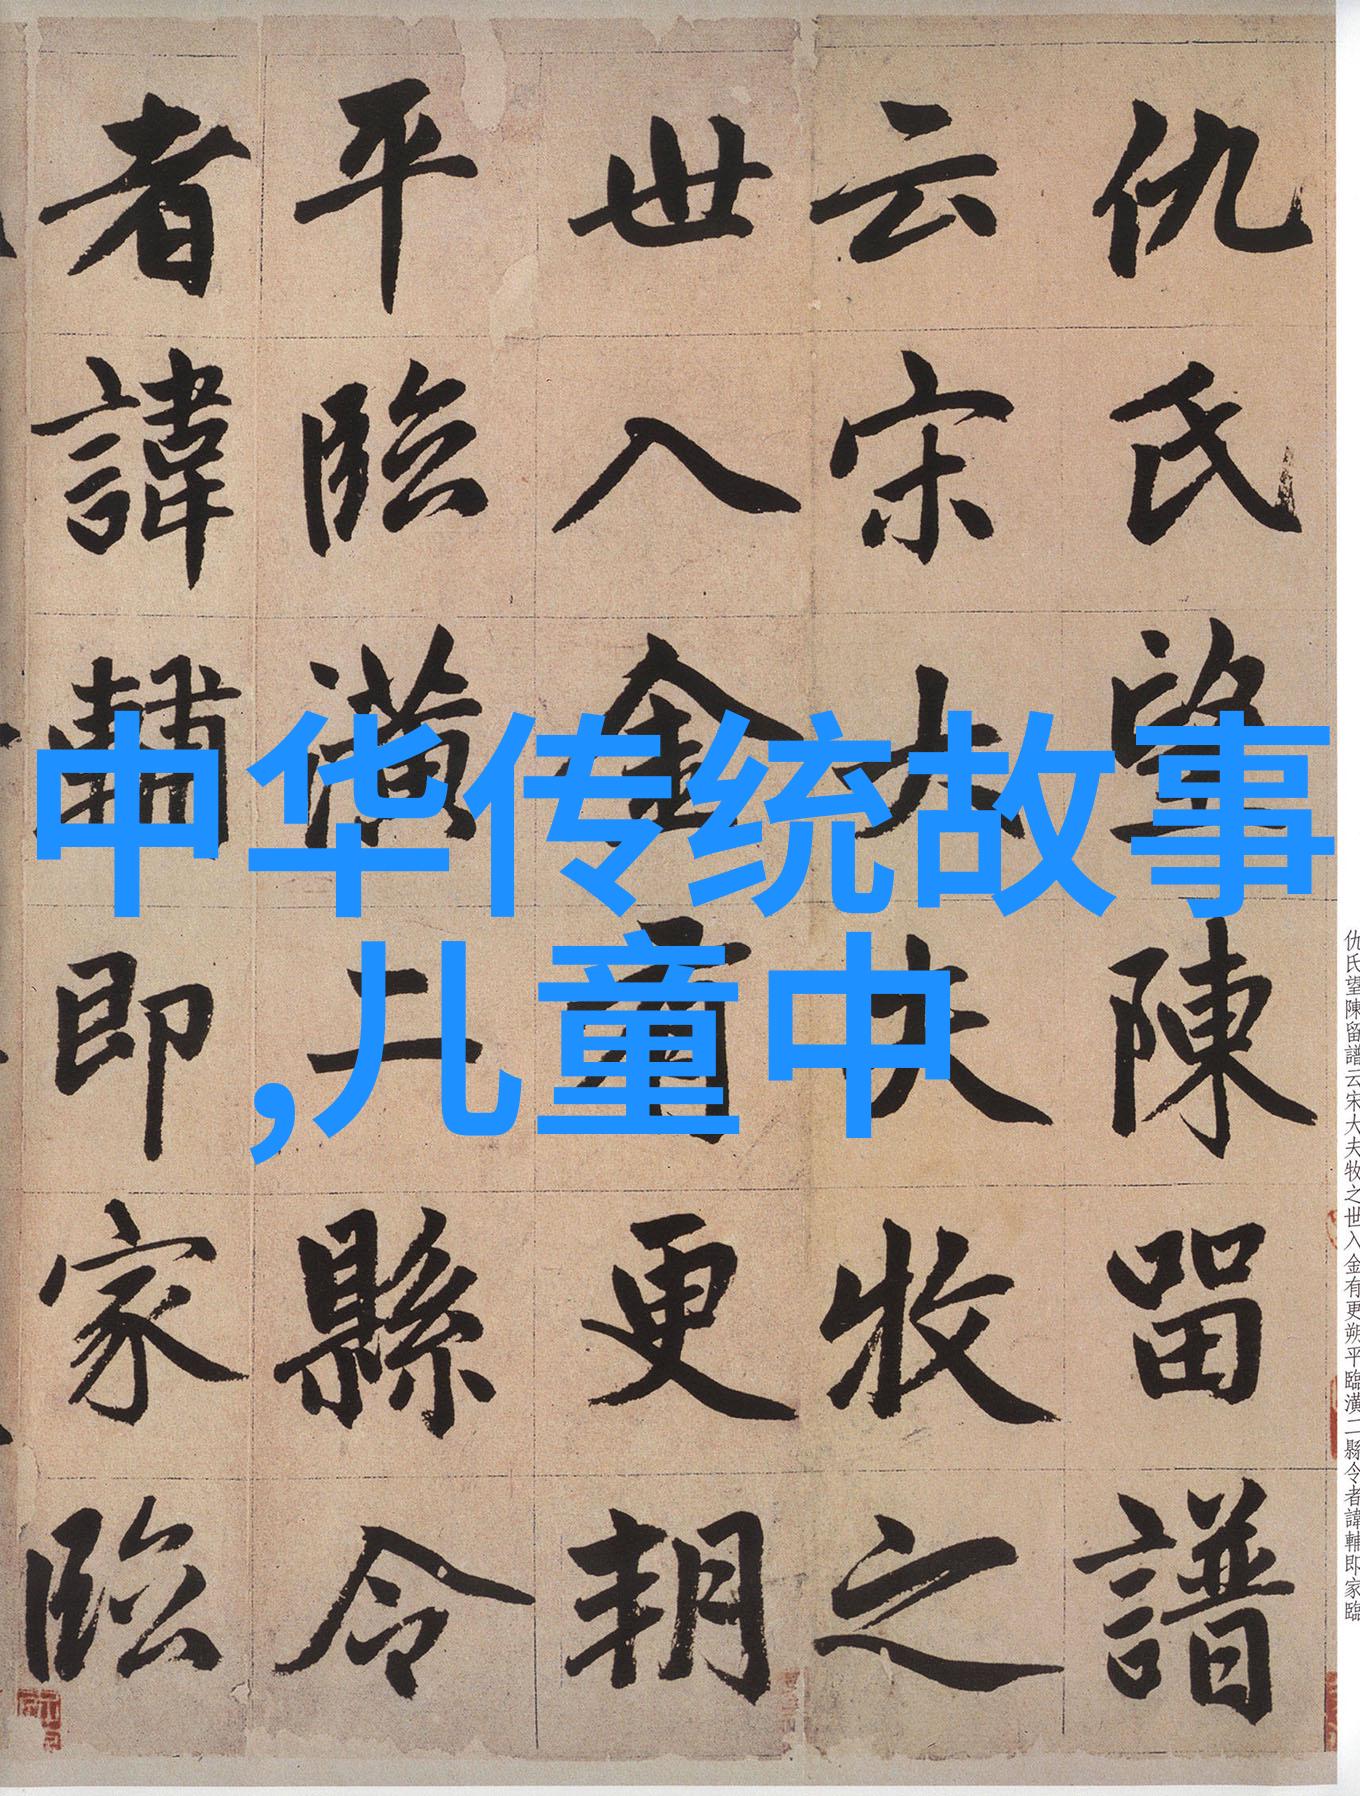 仇氏望陳留譜
云宋大夫牧之
世入金有更朔
平臨潢二縣令
者諱輔即家臨
中华传统故事
,儿童中
仇氏望陳留譜云宋大夫牧之世入金有更朔平臨潢二縣令者諱輔即家臨